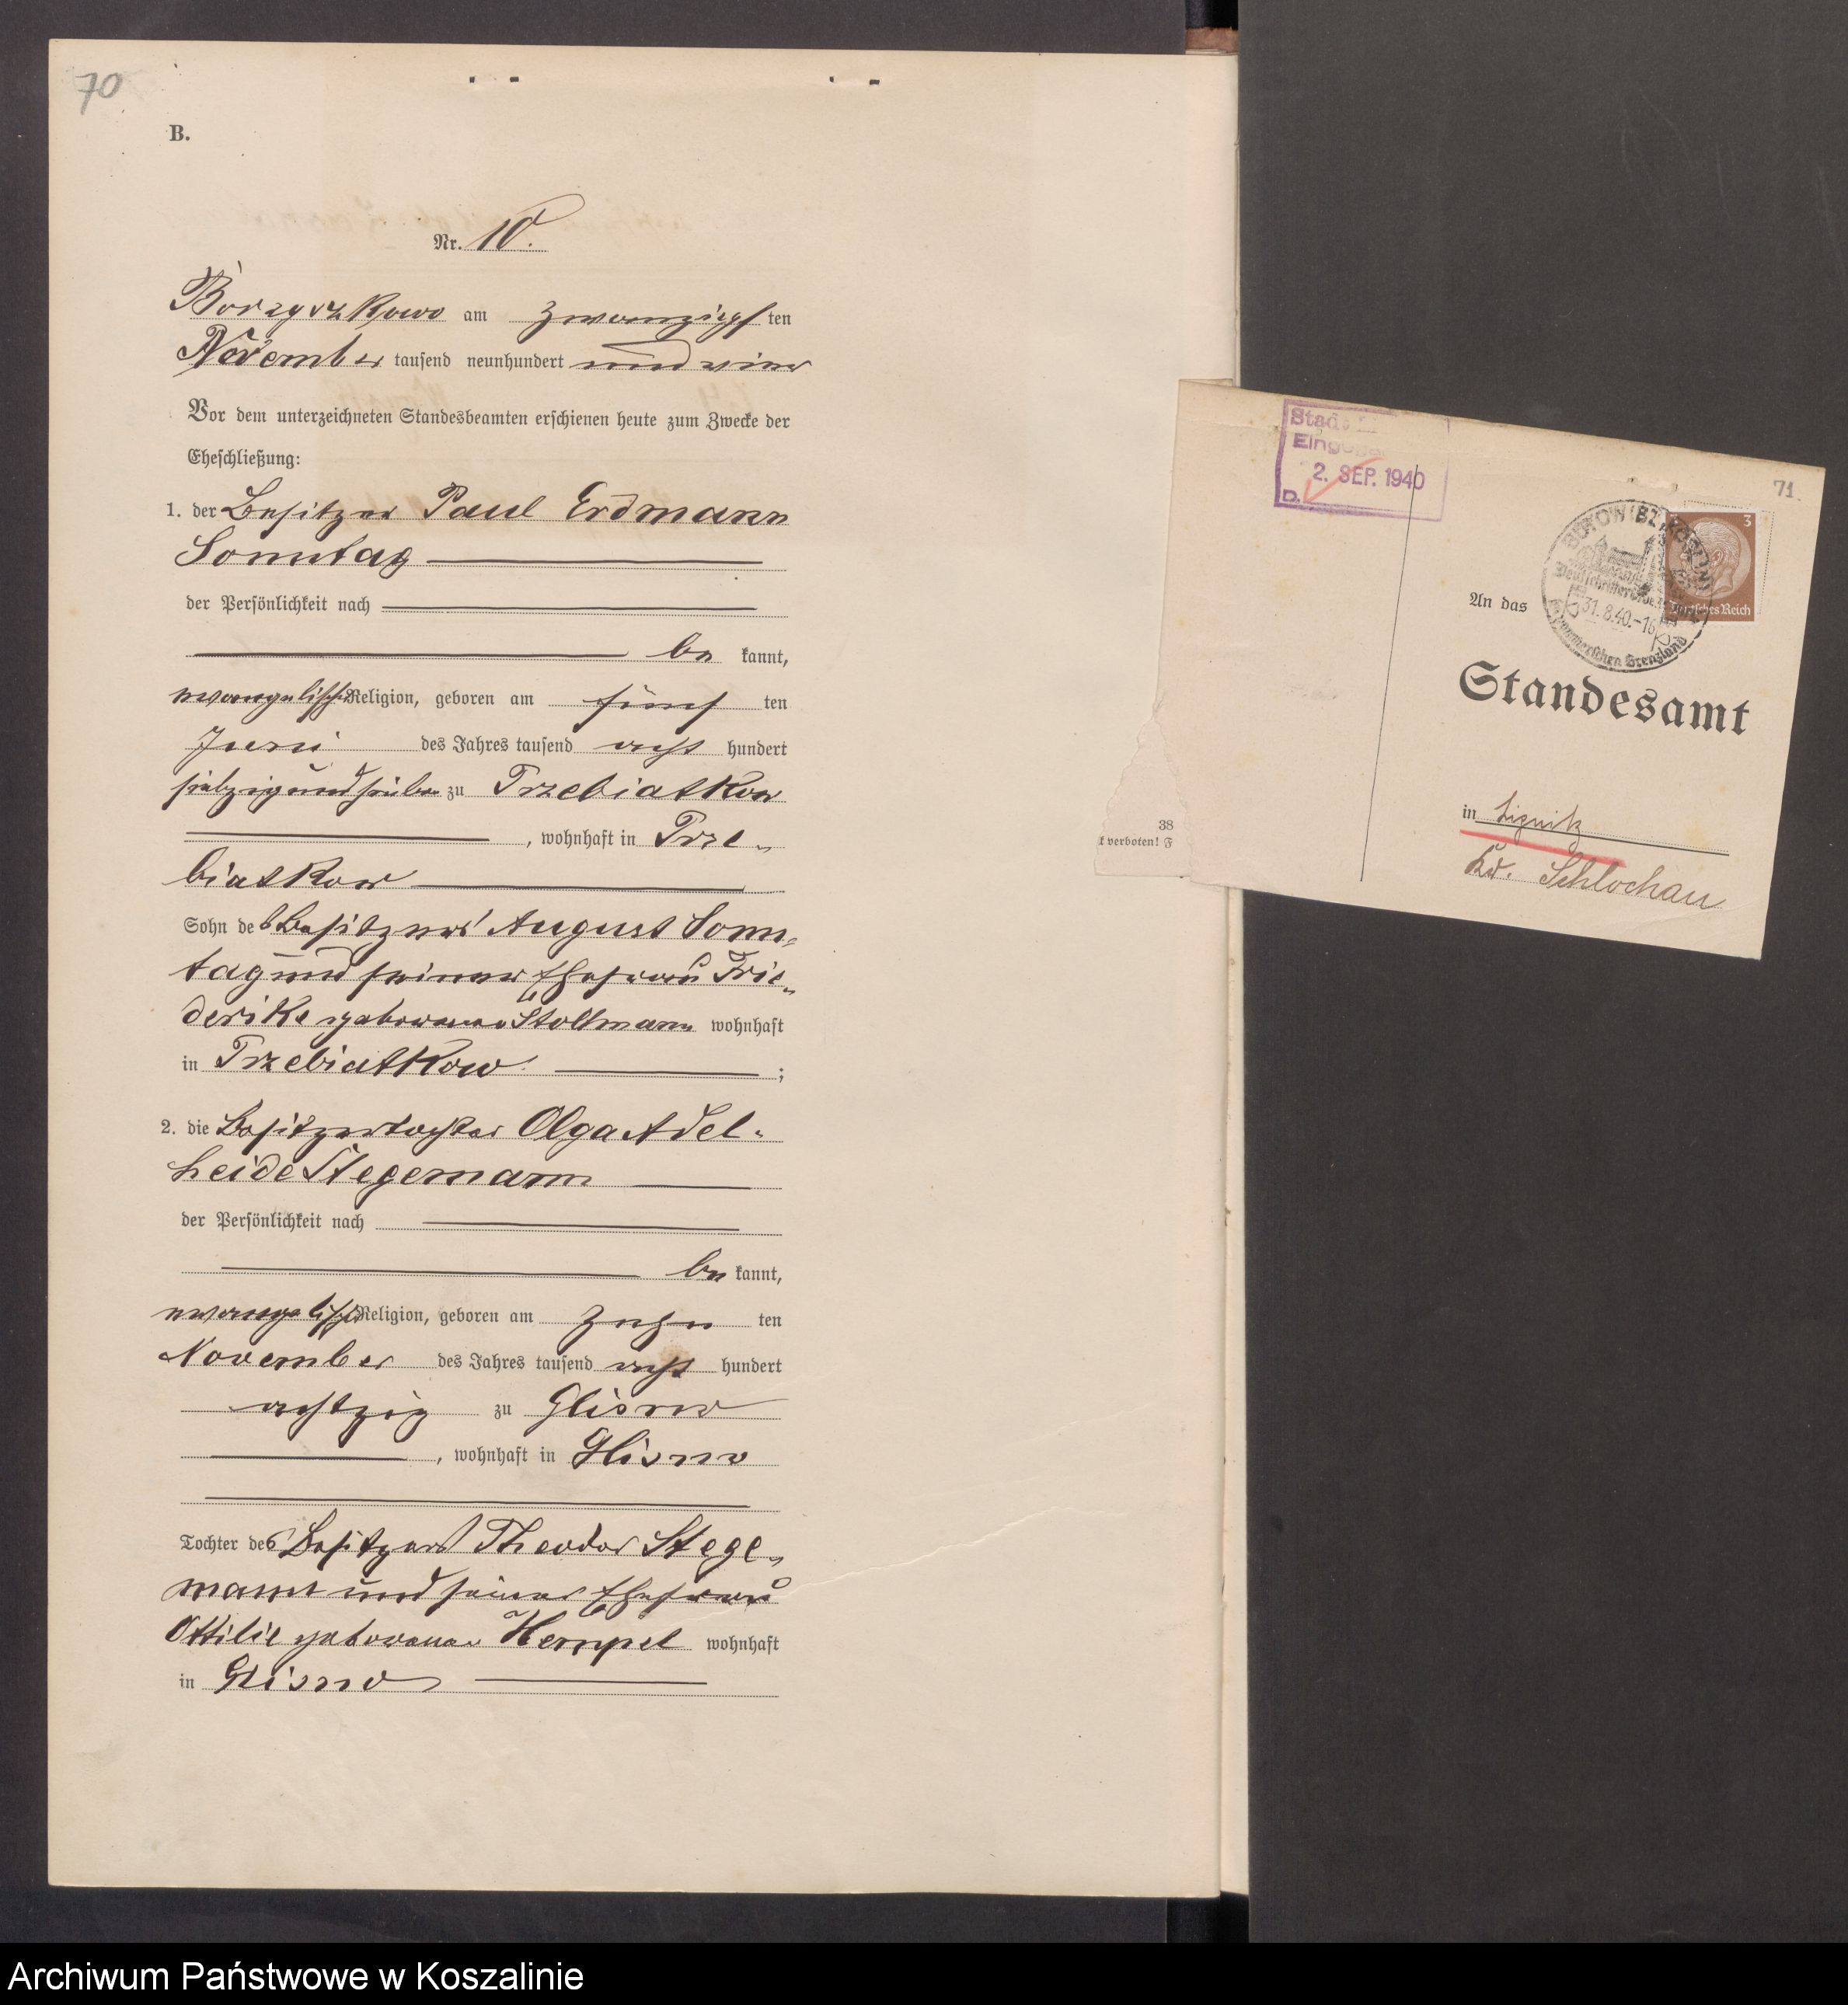 70
B.
Nr. 10.
Borzyszkowo am zwanzigsten
November tausend neunhundert und vier
Vor dem unterzeichneten Standesbeamten erschienen heute zum Zwecke der
Eheschließung:
1. der Besitzer Paul Erdmann
Sonntag
der Persönlichkeit nach
bekannt,
evangelischer Religion, geboren am fünften
Juni des Jahres tausend achthundert
siebzig und sieben zu Trzebiatkow
, wohnhaft in Trze-
biatkow
Sohn des Besitzers August Sonn-
tag und seiner Ehefrau Frie-
derike geborenen Stollmann wohnhaft
in Trzebiatkow ;
2. die Besitzertochter Olga Adel-
heide Stegemann
der Persönlichkeit nach
bekannt,
evangelischer Religion, geboren am zehnten
November des Jahres tausend achthundert
achtzig zu Glisno
, wohnhaft in Glisno
Tochter des Besitzers Theodor Stege-
mann und seiner Ehefrau
Ottilie geborenen Hempel wohnhaft
in Glisno
38
t verboten! F
Stadt
2. SEP. 1940
D.
71.
3
Deutsches Reich
31.8.40.-16
An das
Standesamt
in Lignitz
Kr. Schlochau
Archiwum Państwowe w Koszalinie